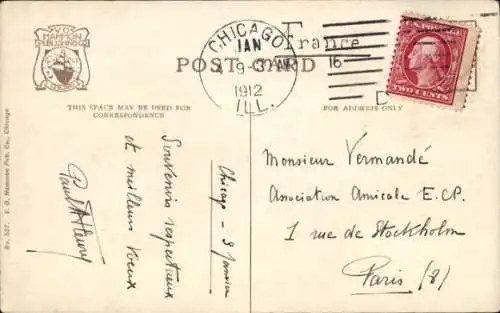 V.O.
HAMMON
PUBLISHING CO.
CHICAGO
CHICAGO
JAN
9-30 AM
1912
ILL.
France
16
POST CARD
TWO CENTS
THIS SPACE MAY BE USED FOR
CORRESPONDENCE
FOR ADDRESS ONLY
No. 537. V. O. Hammon Pub. Co., Chicago
Chicago - 3 Janvier
Souvenirs respectueux
et meilleurs voeux
Monsieur Vermandé
Association Amicale E.C.P.
1 rue de Stockholm
Paris (8)